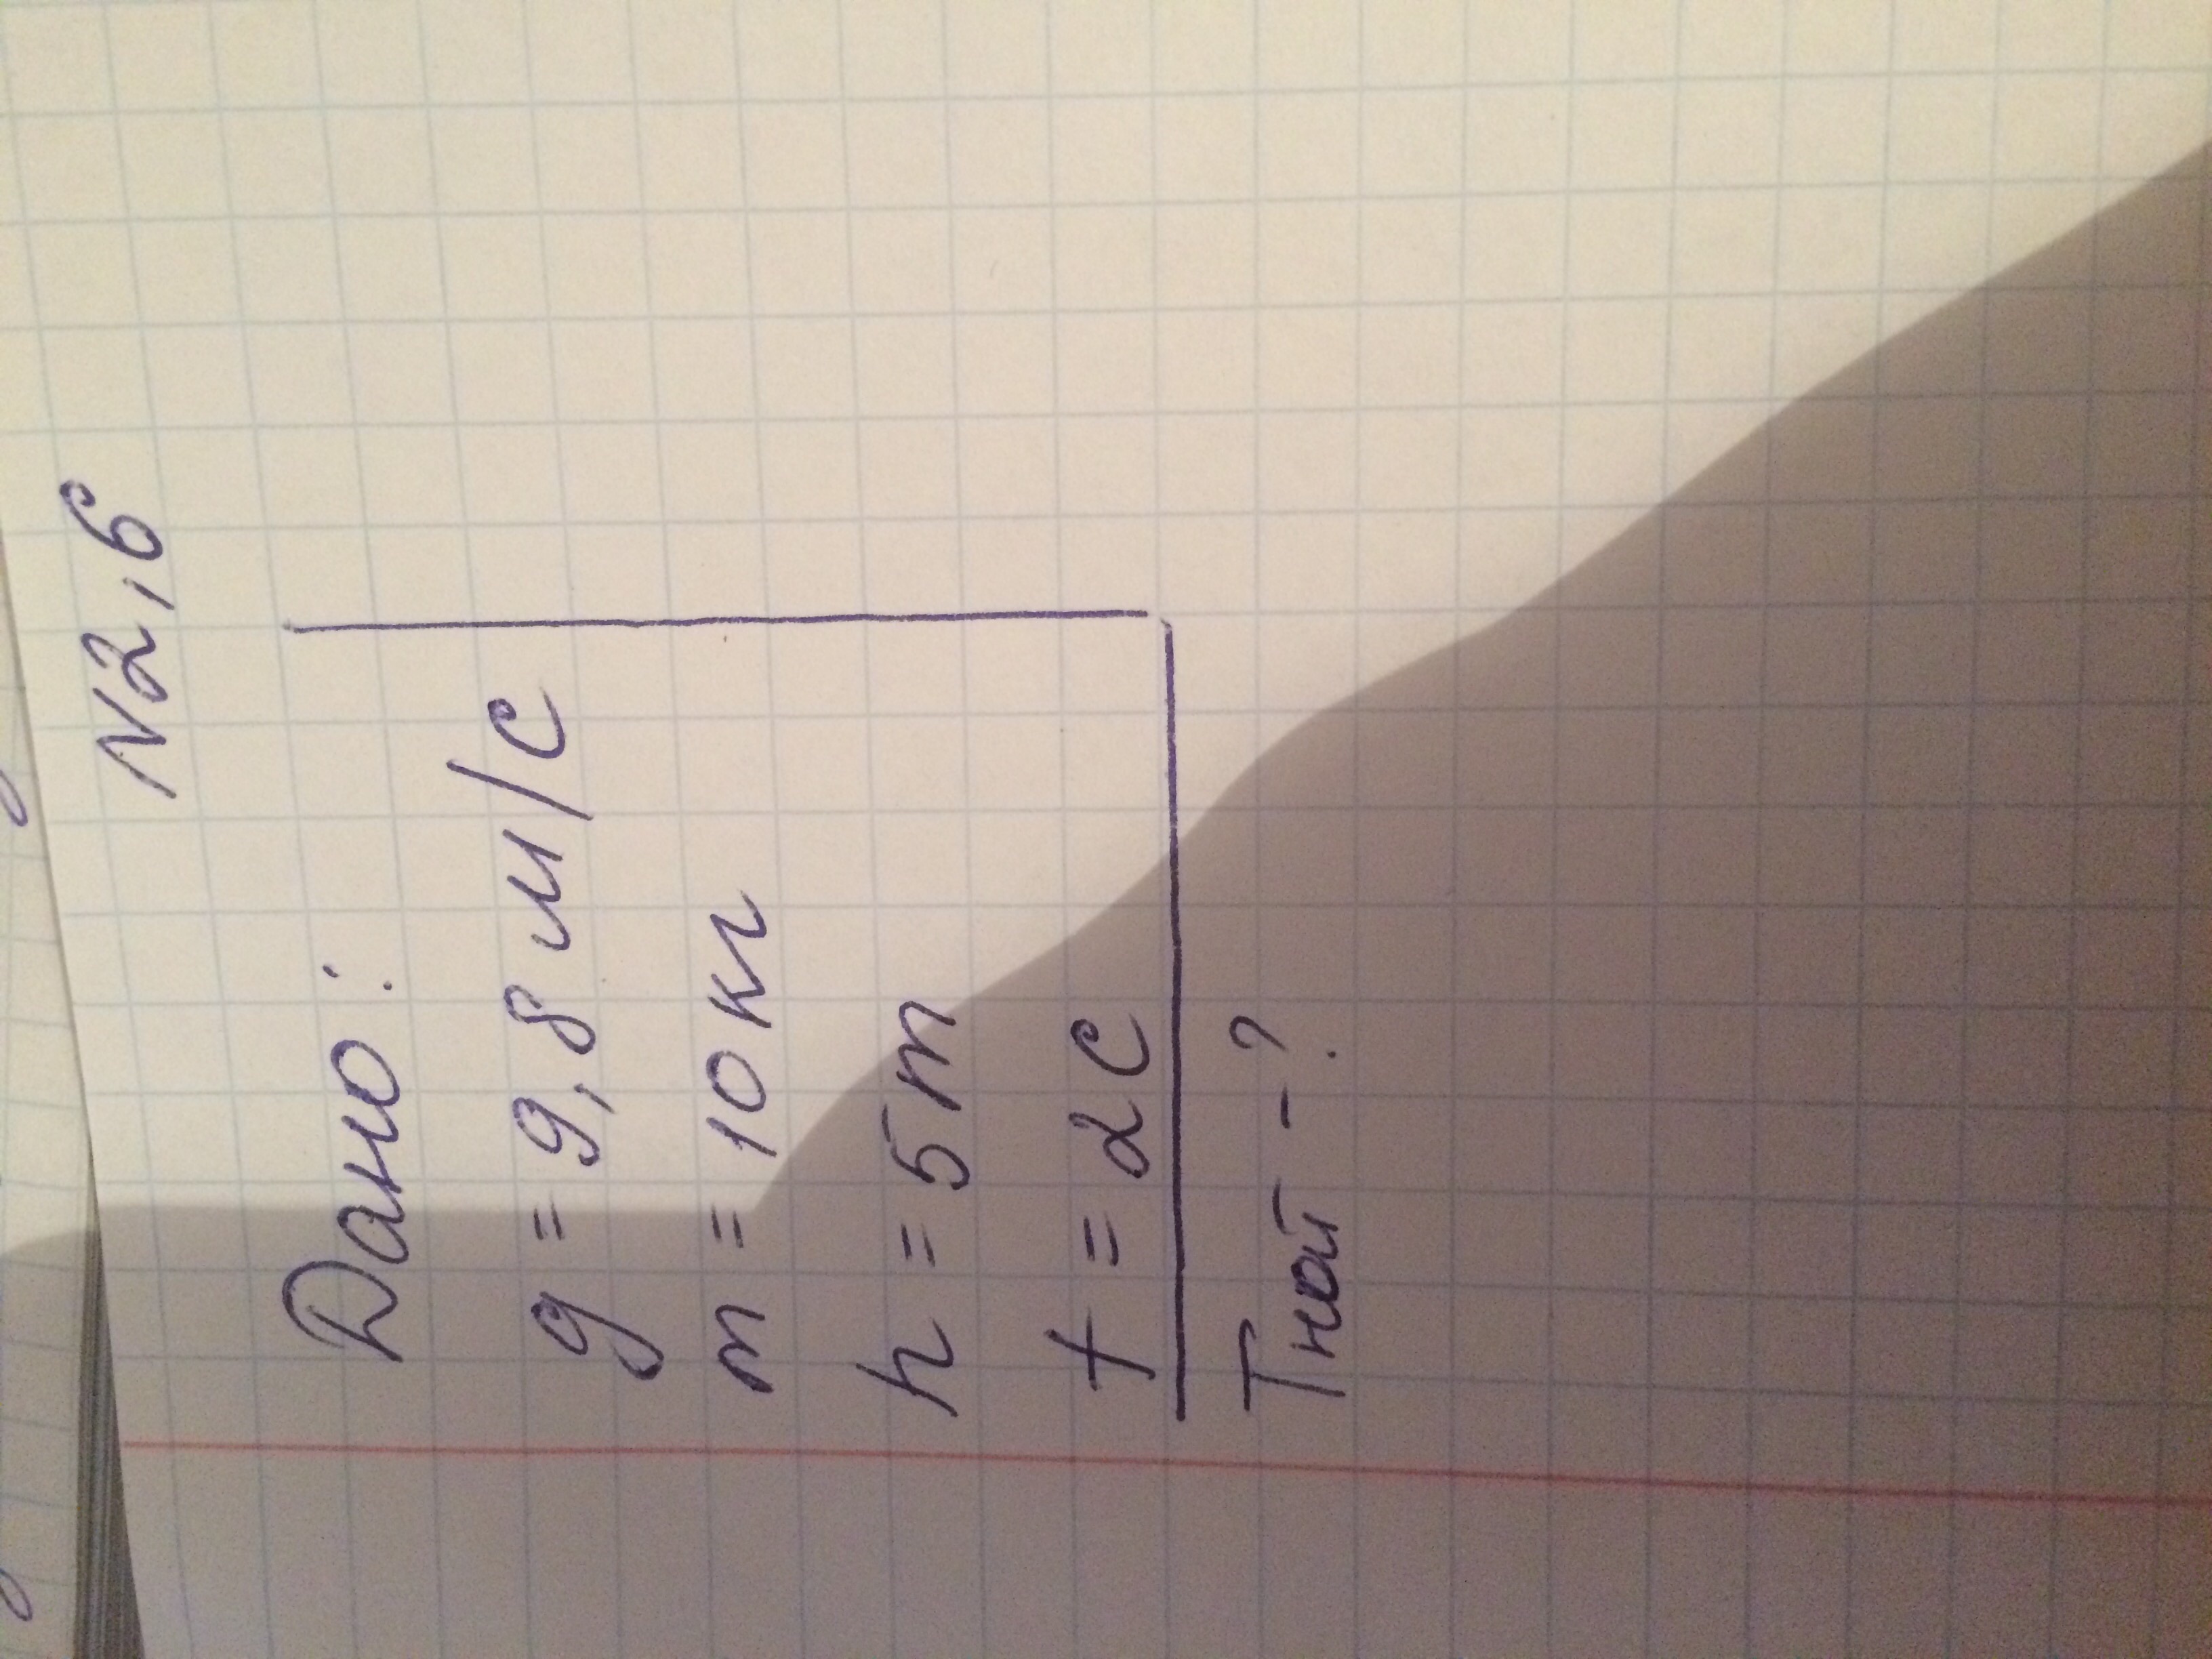 N2,6
Дано:
g = 9,8 м/с
m = 10кг
h = 5m
t = 2с
Тнат - ?